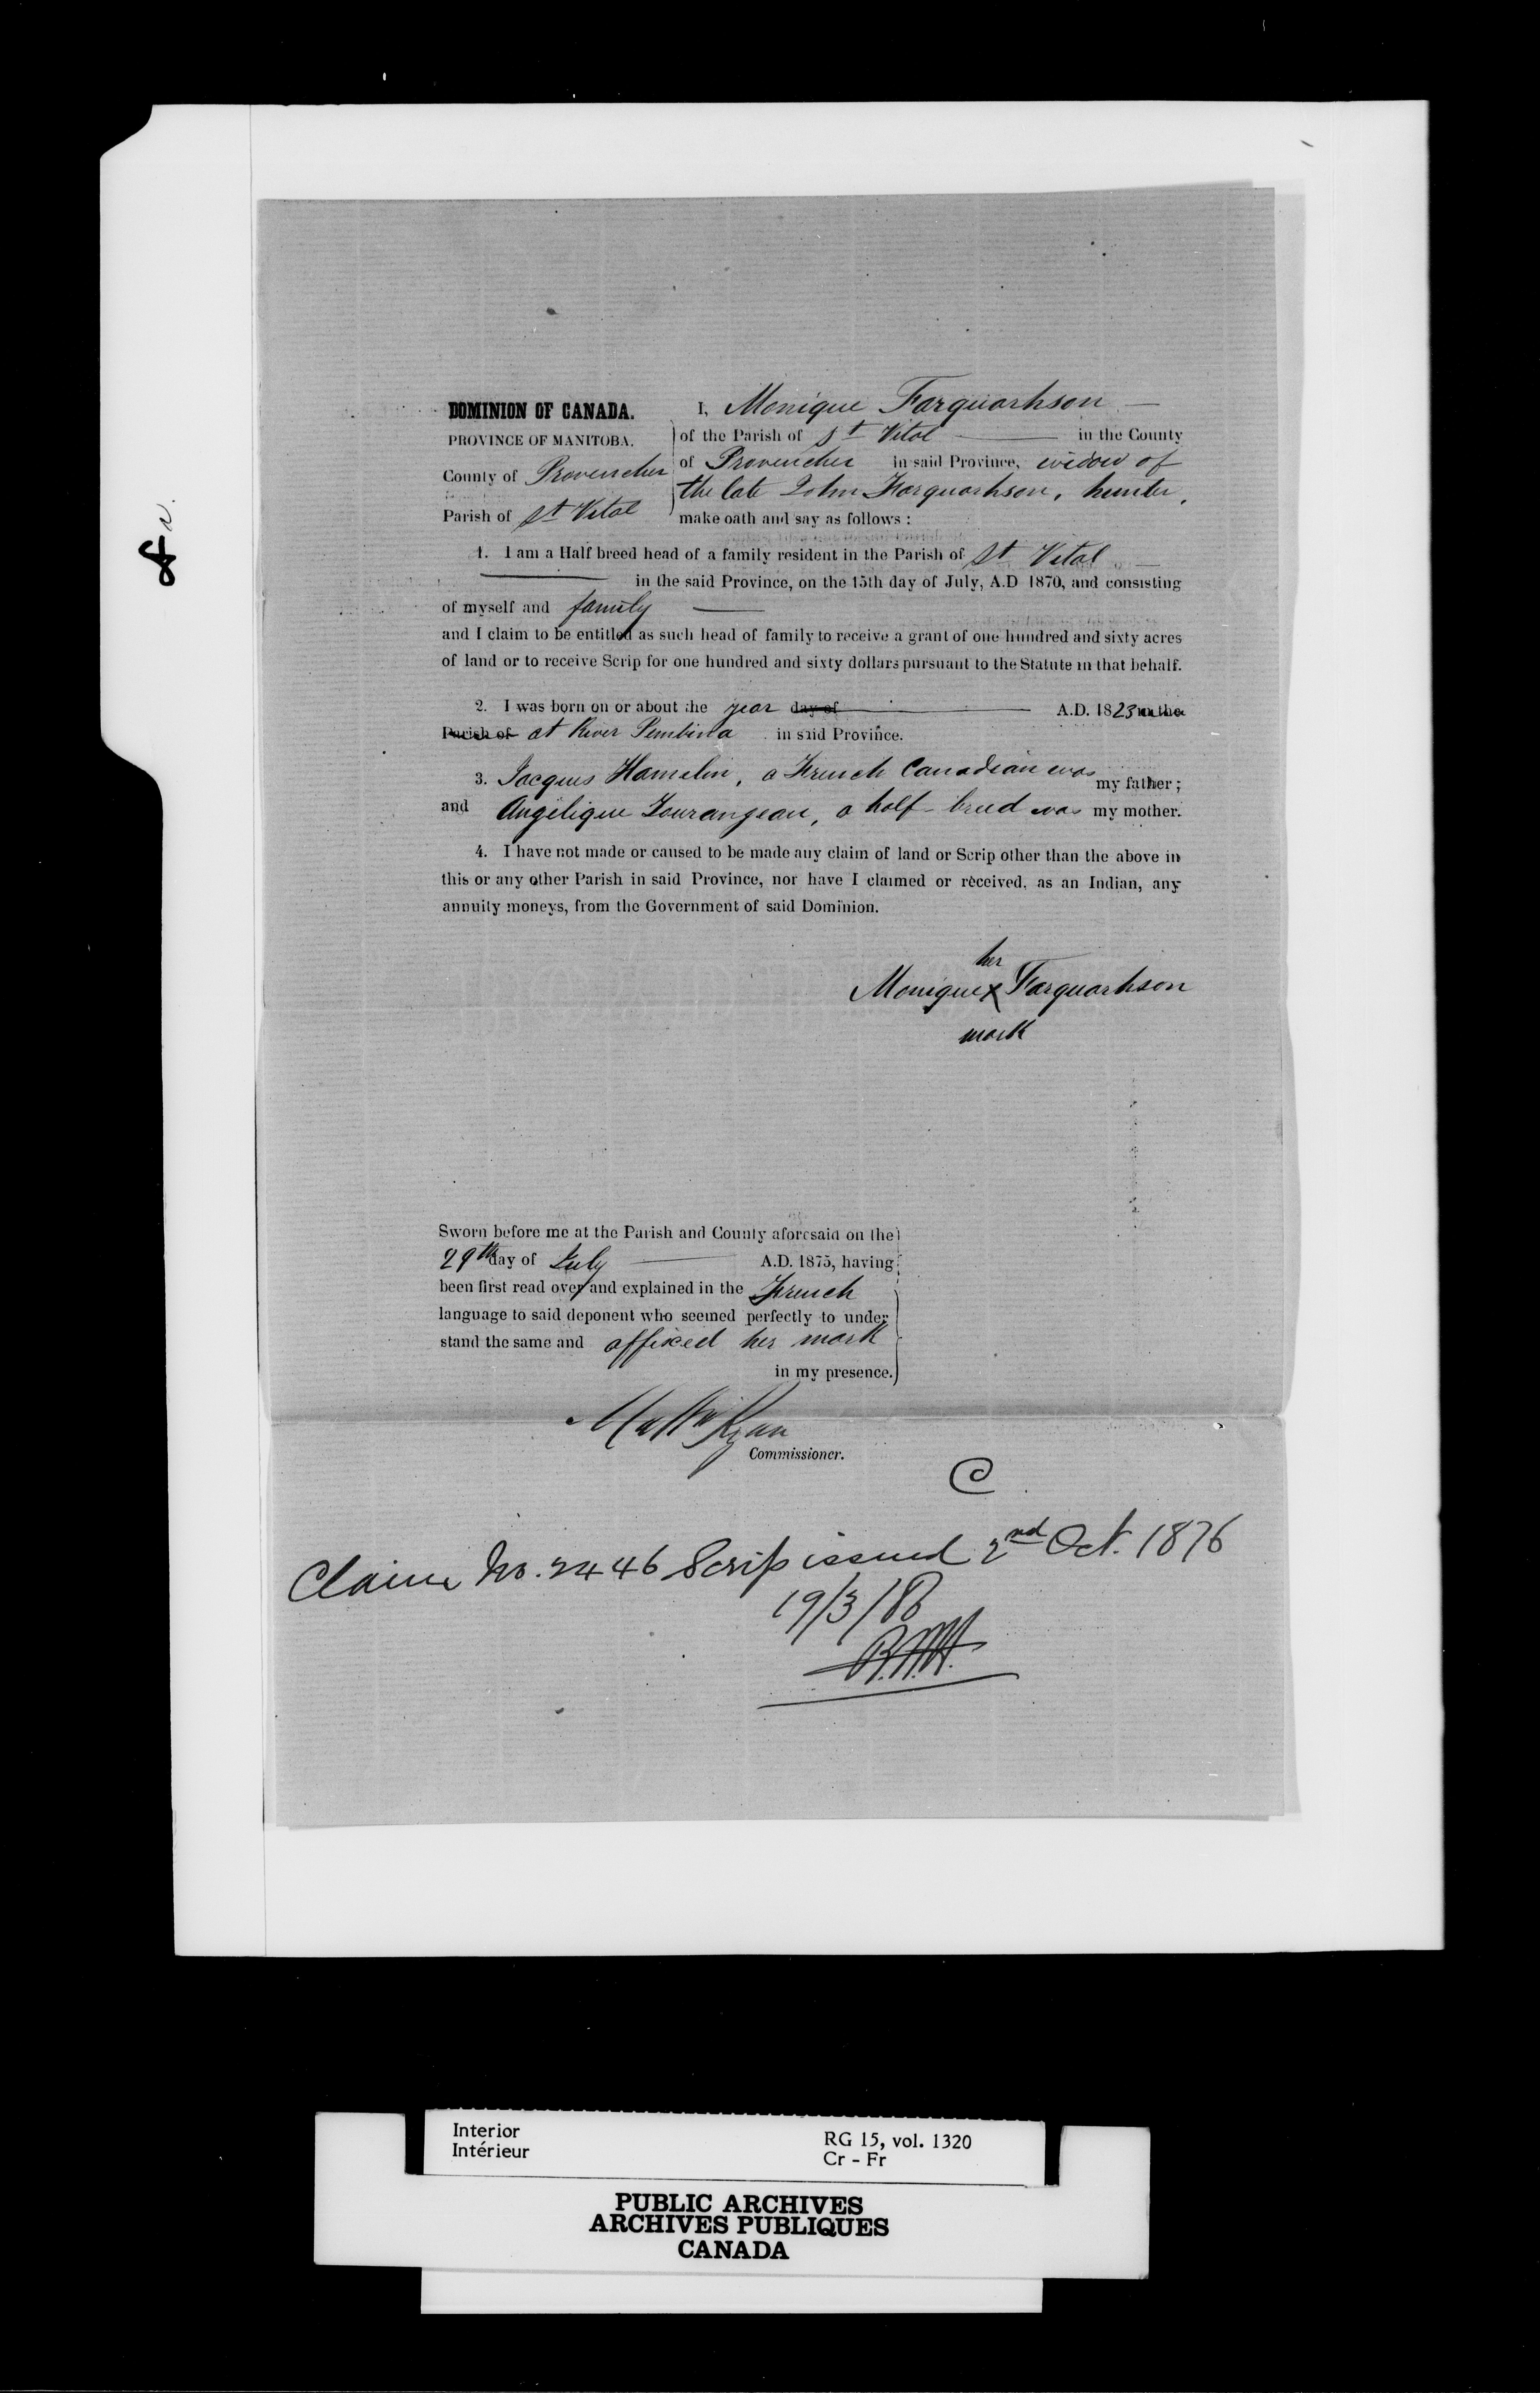 DOMINION OF CANADA.
PROVINCE OF MANITOBA.
County of Provencher
Parish of St Vital
I, Monique Farquarhson
of the Parish of St Vital in the County
of Provencher in said Province, widow of
the late John Farquarhson, hunter,
make oath and say as follows :
1. I am a Half breed head of a family resident in the Parish of St Vital
in the said Province, on the 15th day of July, A.D 1870, and consisting
of myself and family
and I claim to be entitled as such head of family to receive a grant of one hundred and sixty acres
of land or to receive Scrip for one hundred and sixty dollars pursuant to the Statute in that behalf.
2. I was born on or about the year day of A.D. 1823 in the
Parish of at River Pembina in said Province.
3. Jacques Hamelin, a French Canadian was my father ;
and Angélique Tourangeau, a half-breed was my mother.
4. I have not made or caused to be made any claim of land or Scrip other than the above in
this or any other Parish in said Province, nor have I claimed or received, as an Indian, any
annuity moneys, from the Government of said Dominion.
her
Monique x Farquarhson
mark
Sworn before me at the Parish and County aforesaid on the
29th day of July A.D. 1875, having
been first read over and explained in the French
language to said deponent who seemed perfectly to under
stand the same and affixed her mark
in my presence.
Matt Ryan
Commissioner.
C
Claim No. 2446 Scrip issued 2nd Oct. 1876
19/3/88
Interior
Intérieur
RG 15, vol. 1320
Cr - Fr
PUBLIC ARCHIVES
ARCHIVES PUBLIQUES
CANADA